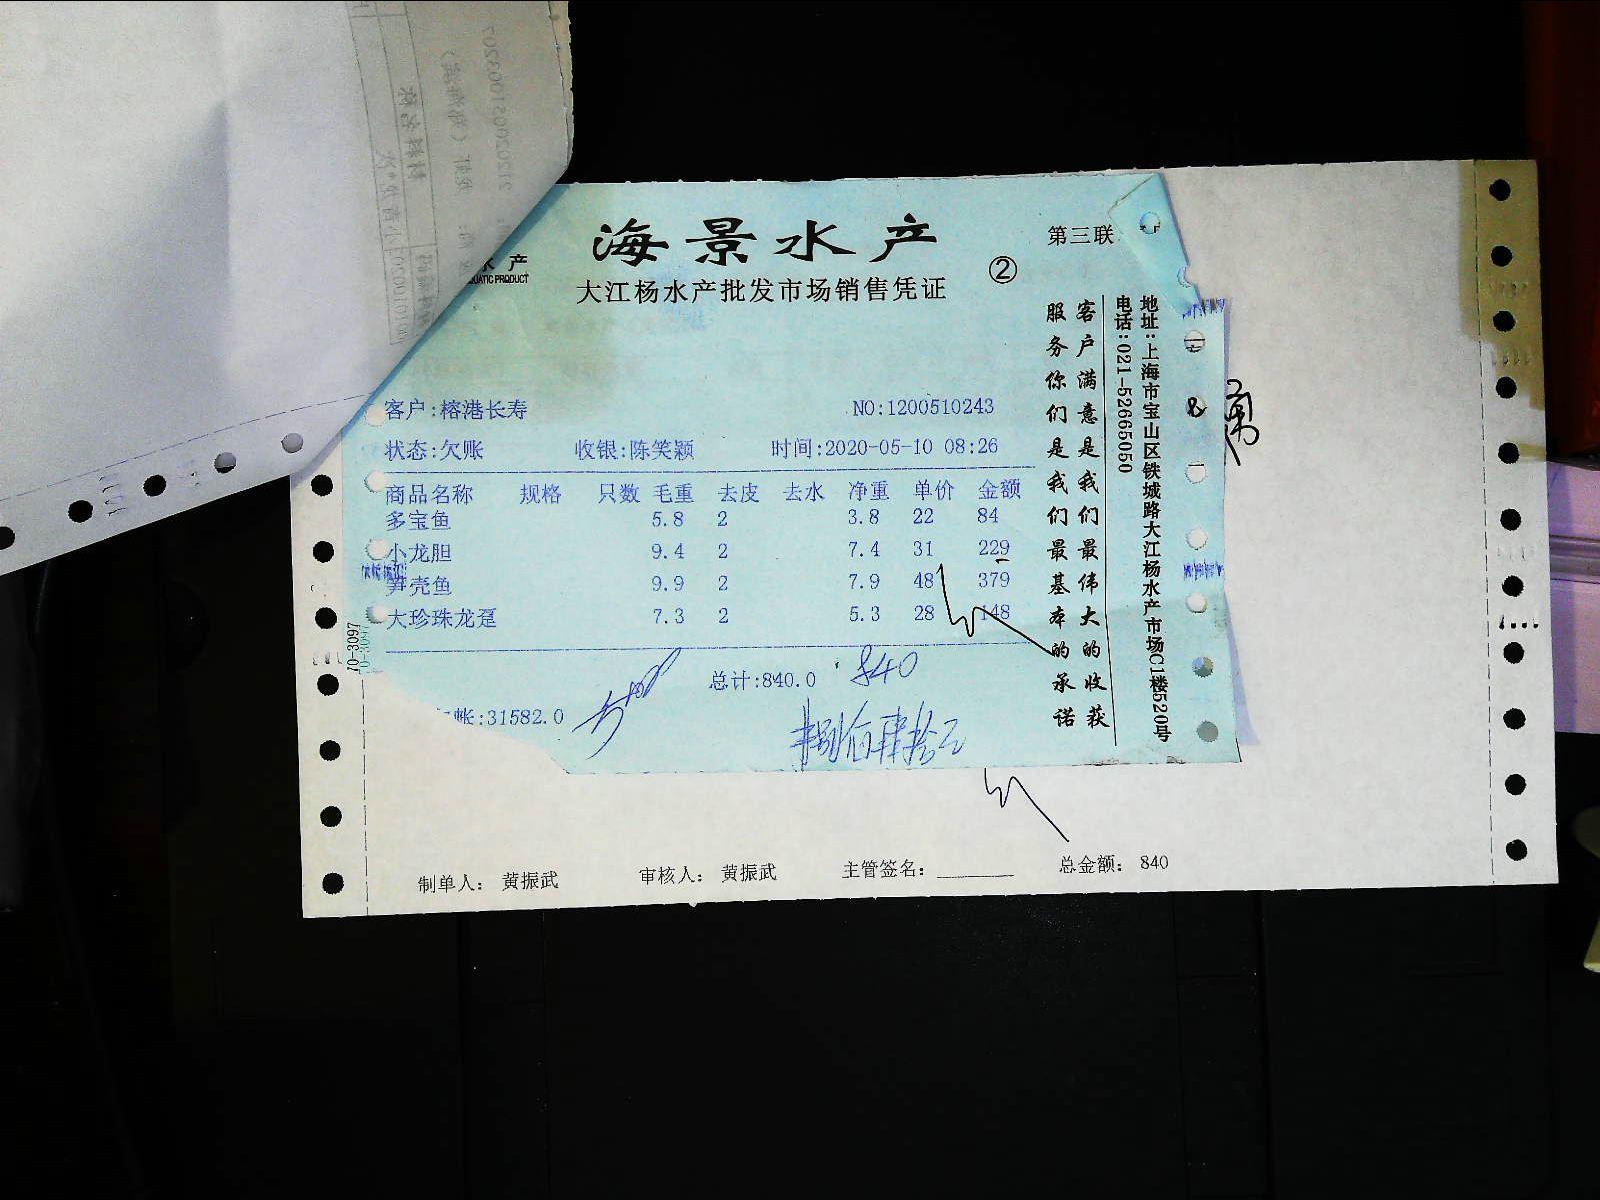 水产
AQUATIC PRODUCT
海景水产
大江杨水产批发市场销售凭证
②
第三联
客户:榕港长寿 NO:1200510243
状态:欠账 收银:陈笑颖 时间:2020-05-10 08:26
商品名称 规格 只数 毛重 去皮 去水 净重 单价 金额
多宝鱼 5.8 2 3.8 22 84
小龙胆 9.4 2 7.4 31 229
笋壳鱼 9.9 2 7.9 48 379
大珍珠龙趸 7.3 2 5.3 28 148
总计:840.0 840
帐:31582.0
捌佰肆拾元
客户满意是我们最伟大的收获
服务你们是我们最基本的承诺
地址:上海市宝山区铁城路大江杨水产市场C1楼520号
电话:021-52665050
70-3097
制单人: 黄振武 审核人: 黄振武 主管签名: 总金额: 840